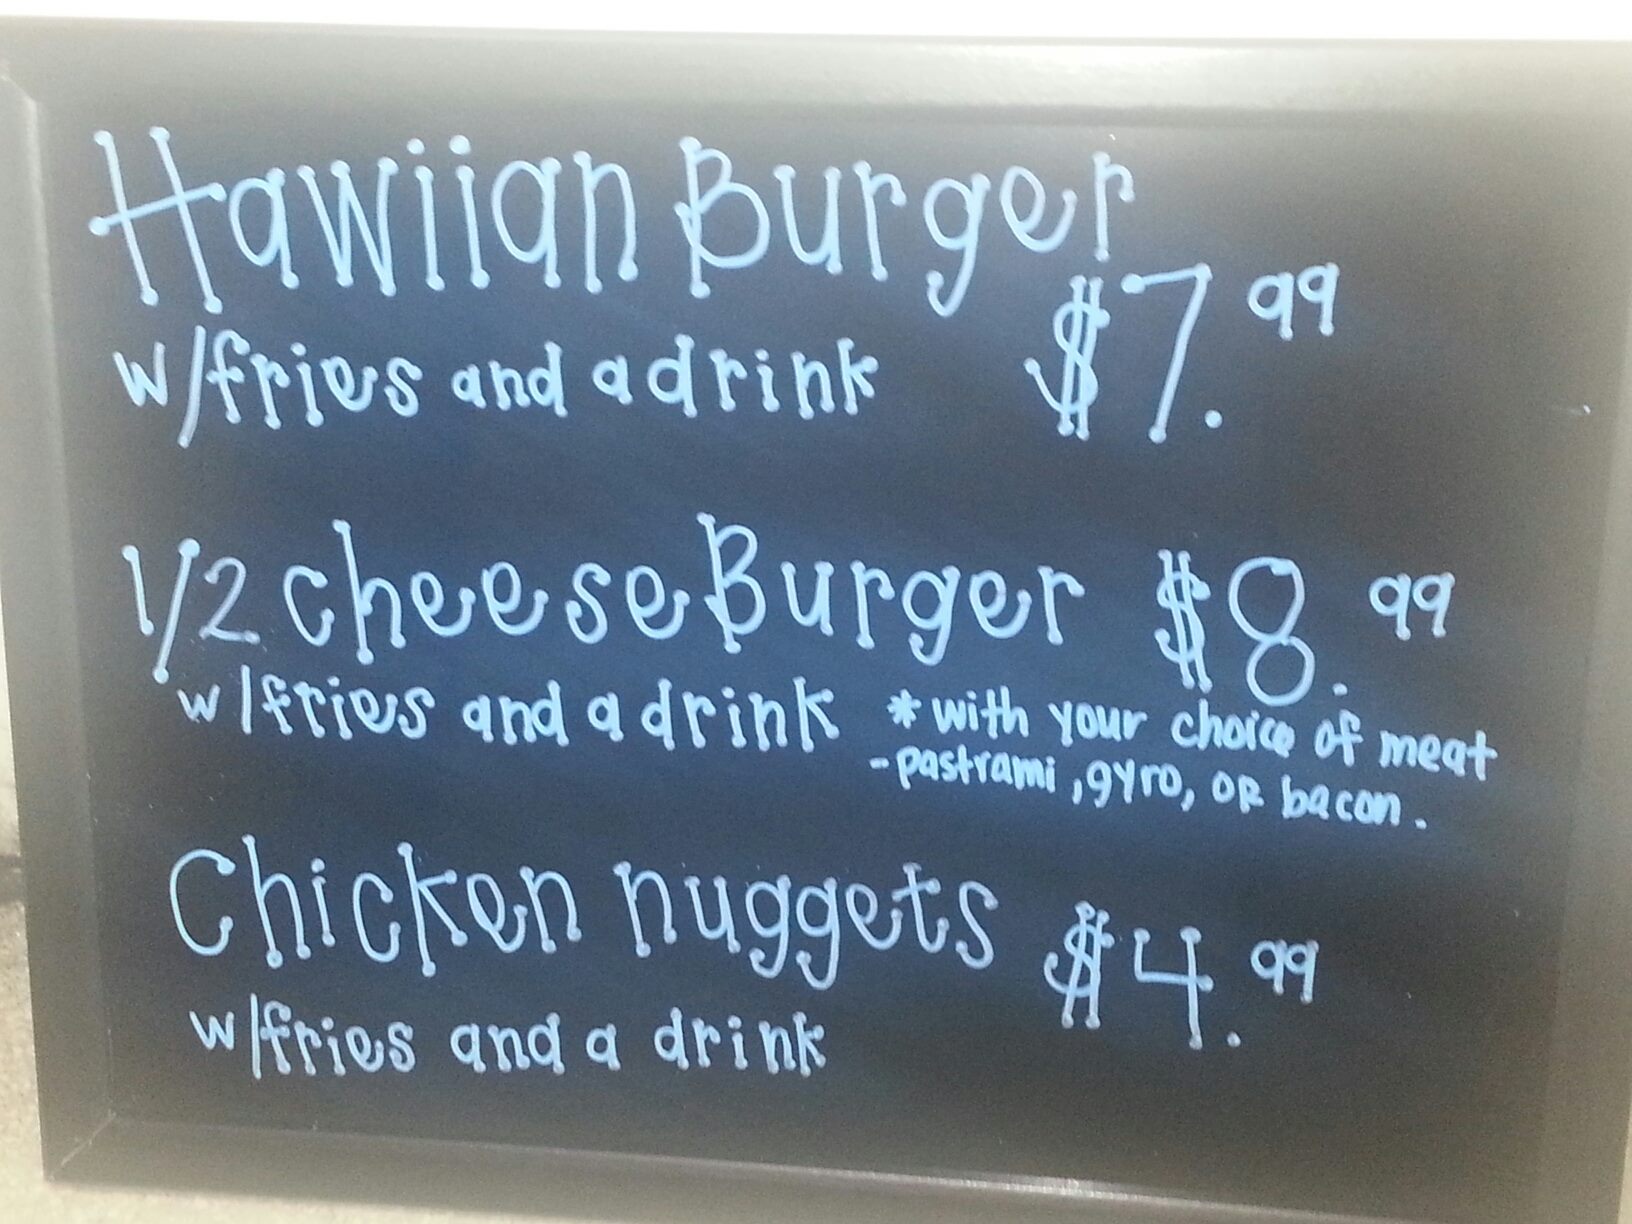 Hawiian Burger
$7.99
w/fries and a drink
1/2 cheeseBurger $8.99
w/fries and a drink
*with your choice of meat
-pastrami, gyro, OR bacon.
Chicken nuggets $4.99
w/fries and a drink